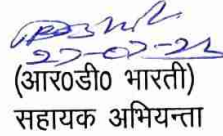 27-07-21
(आर0डी0 भारती)
सहायक अभियन्ता